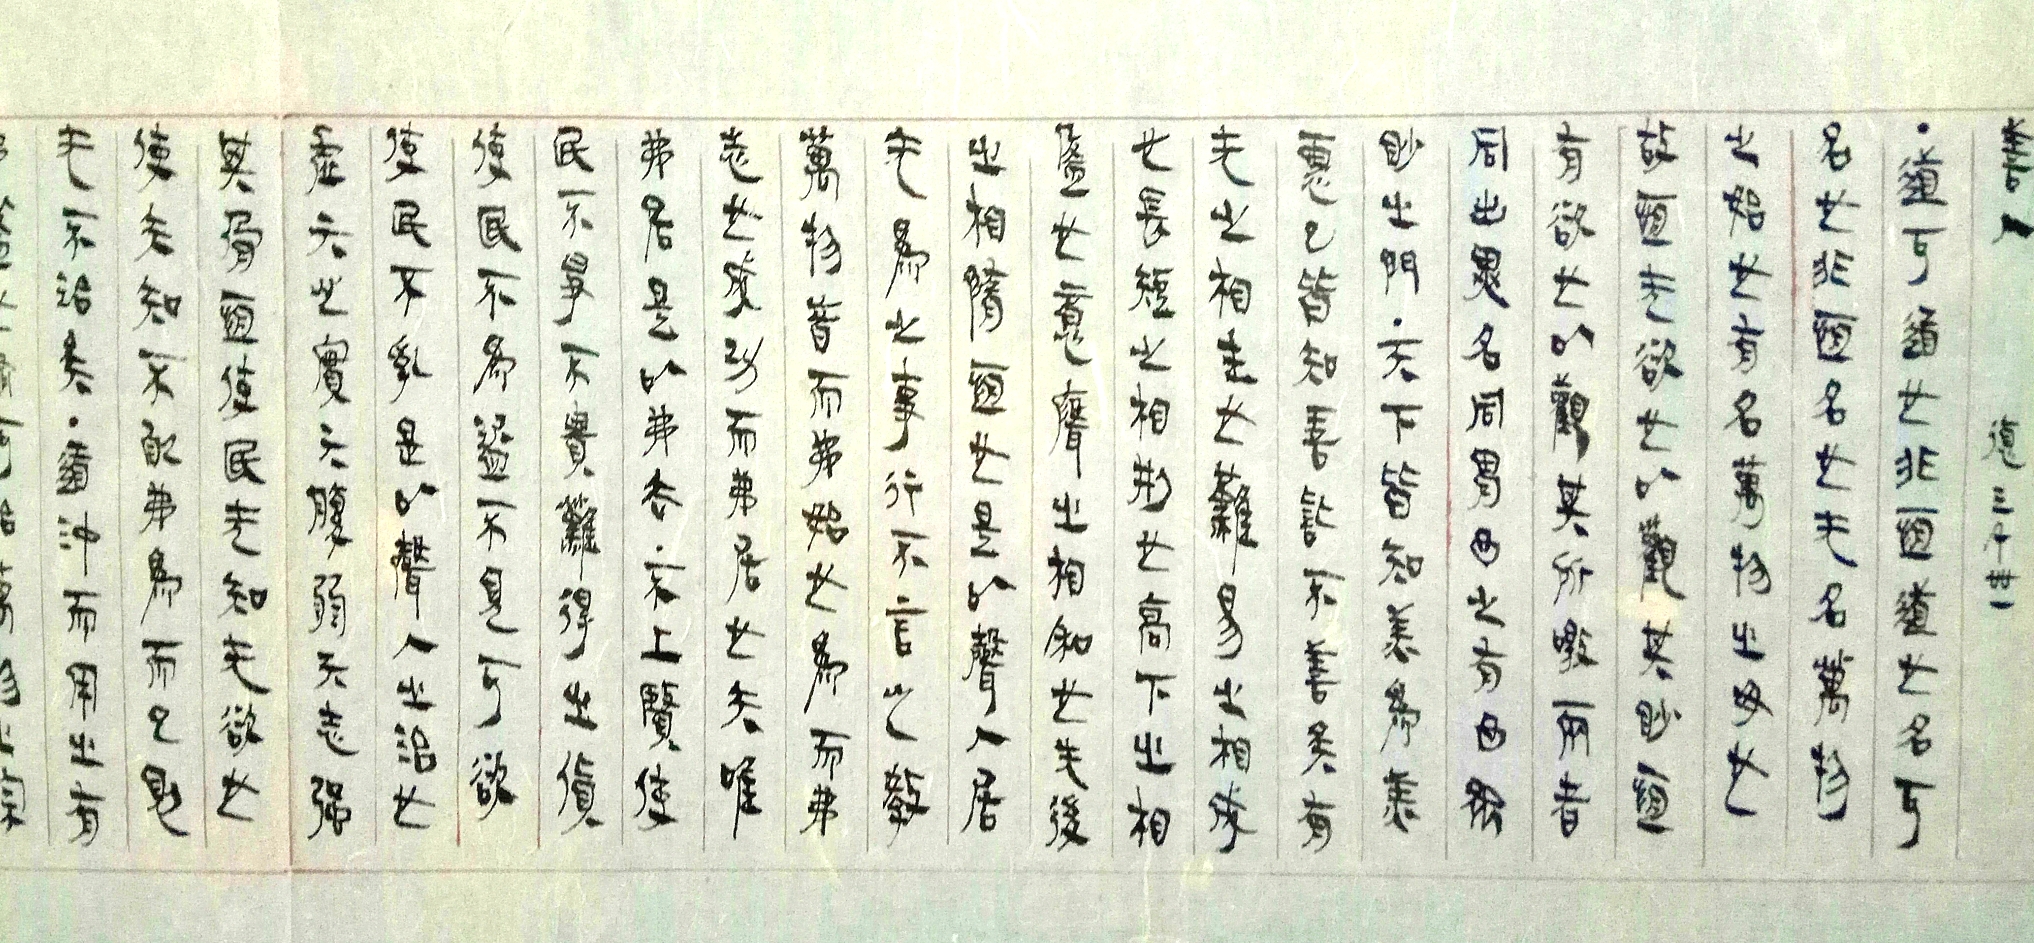 善人 道
・道可道也非恆道也名可
名也非恆名也无名萬物
之始也有名萬物之母也
故恆无欲也以觀其眇恆
有欲也以觀其所噭兩者
同出異名同胃玄之有玄眾
眇之門・天下皆知美爲美
惡已皆知善訾不善矣有
无之相生也難易之相成
也長短之相刑也高下之相
盈也意聲之相和也先後
之相隋恆也是以聲人居
无爲之事行不言之教
萬物昔而弗始也爲而弗
志也成功而弗居也夫唯
弗居是以弗去・不上賢使
民不爭不貴難得之貨
使民不爲盜不見可欲
使民不亂是以聲人之治也
虛亓心實亓腹弱亓志強
其骨恆使民无知无欲也
使夫知不敢弗爲而已則
无不治矣・道沖而用之有